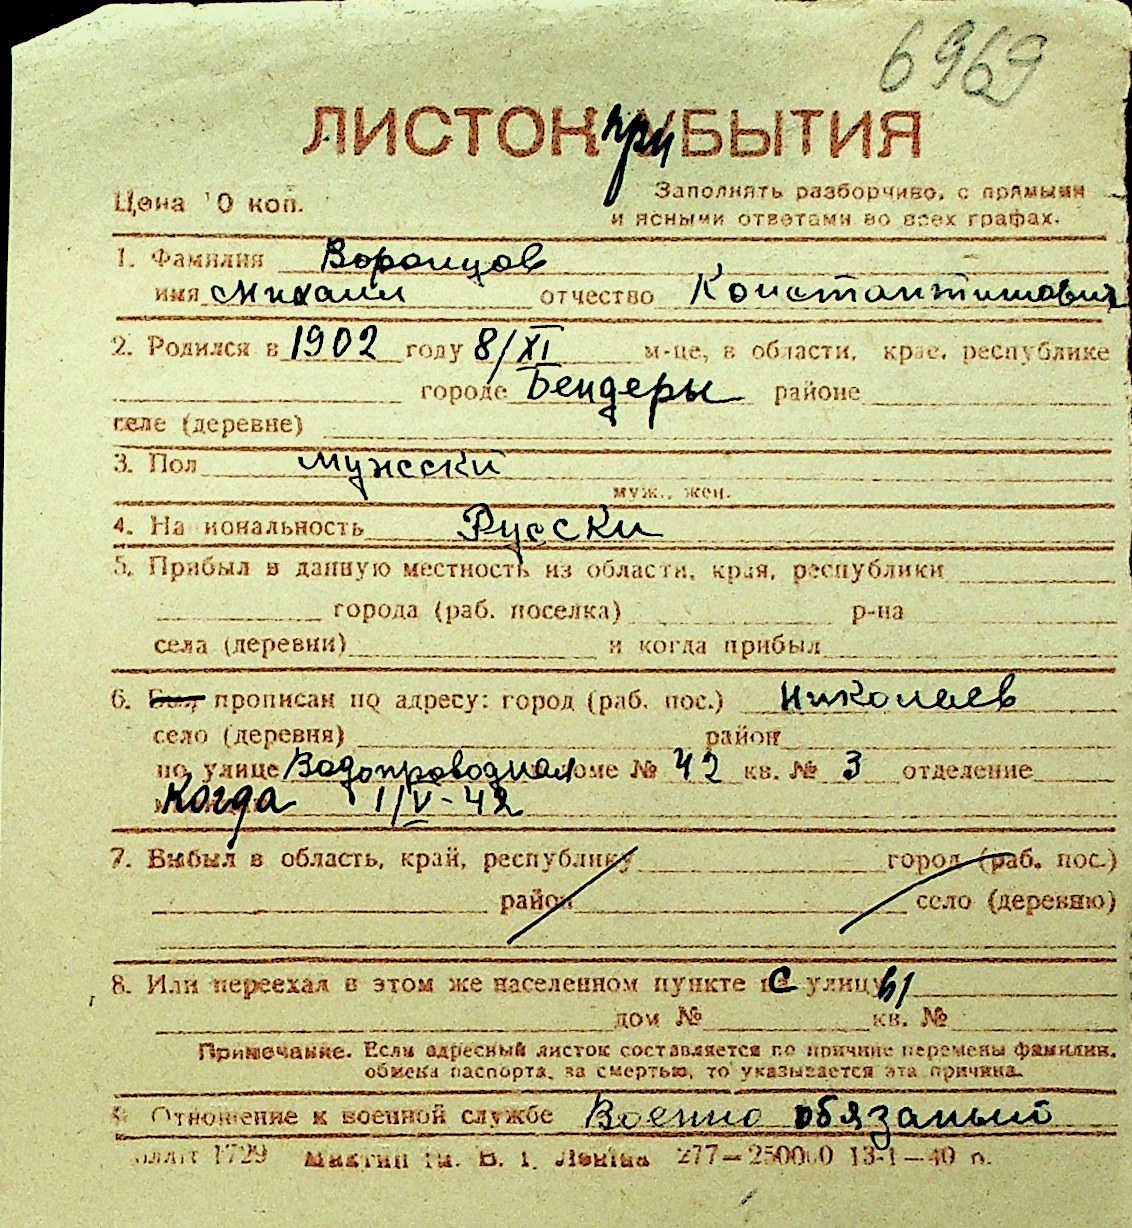 6969
ЛИСТОК приБЫТИЯ
Цена 10 коп.
Заполнять разборчиво, с прямыми
и ясными ответами во всех графах.
1. Фамилия Воронцов
имя Михаил отчество Константинович
2. Родился в 1902 году 8/XI м-це, в области, крае, республике
городе Бендеры районе
селе (деревне)
3. Пол Мужески
муж., жен.
4. Национальность Русски
5. Прибыл в данную местность из области, края, республики
города (раб. поселка) р-на
села (деревни) и когда прибыл
6. Был прописан по адресу: город (раб. пос.) Николаев
село (деревня) район
по улице Водопроводная доме № 42 кв. № 3 отделение
Когда 1/V-42
7. Выбыл в область, край, республику город (раб. пос.)
район село (деревню)
8. Или переехал в этом же населенном пункте с улицы
дом № кв. №
Примечание. Если адресный листок составляется по причине перемены фамилии,
обмена паспорта, за смертью, то указывается эта причина.
9. Отношение к военной службе Военно обязаный
1729 Миктип им. В. І. Леніна 277—250000 13-1—40 р.